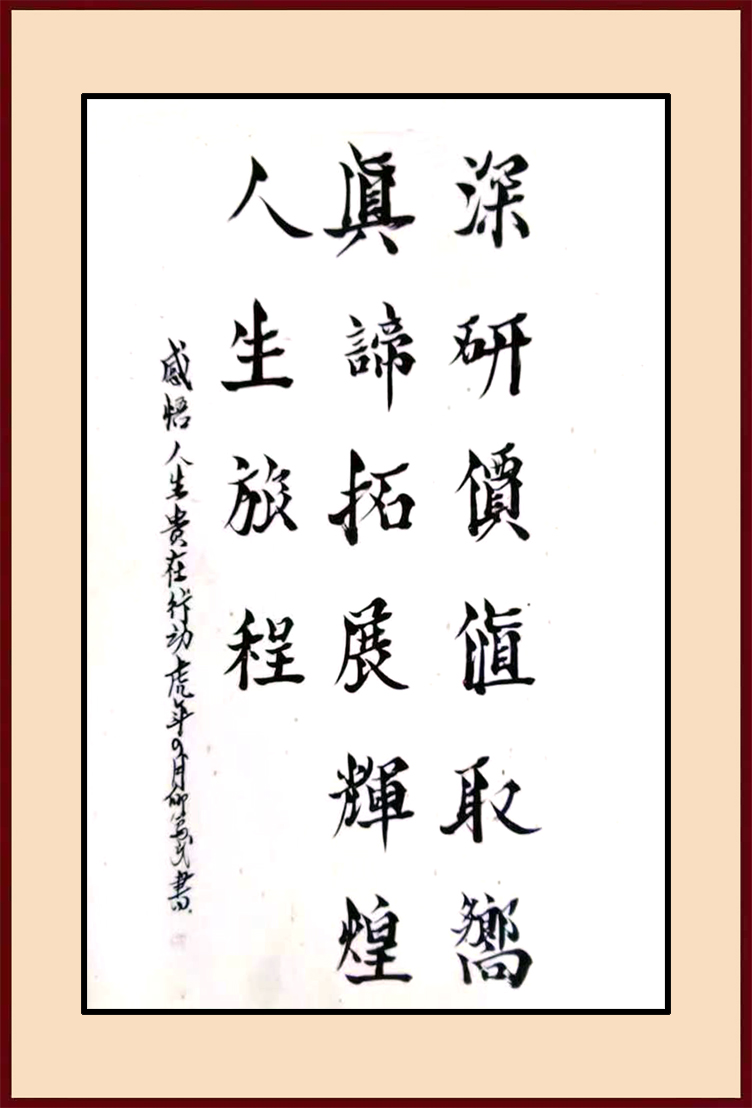 深研價值取嚮
眞諦拓展輝煌
人生旅程
感悟人生貴在行动虎年九月 書